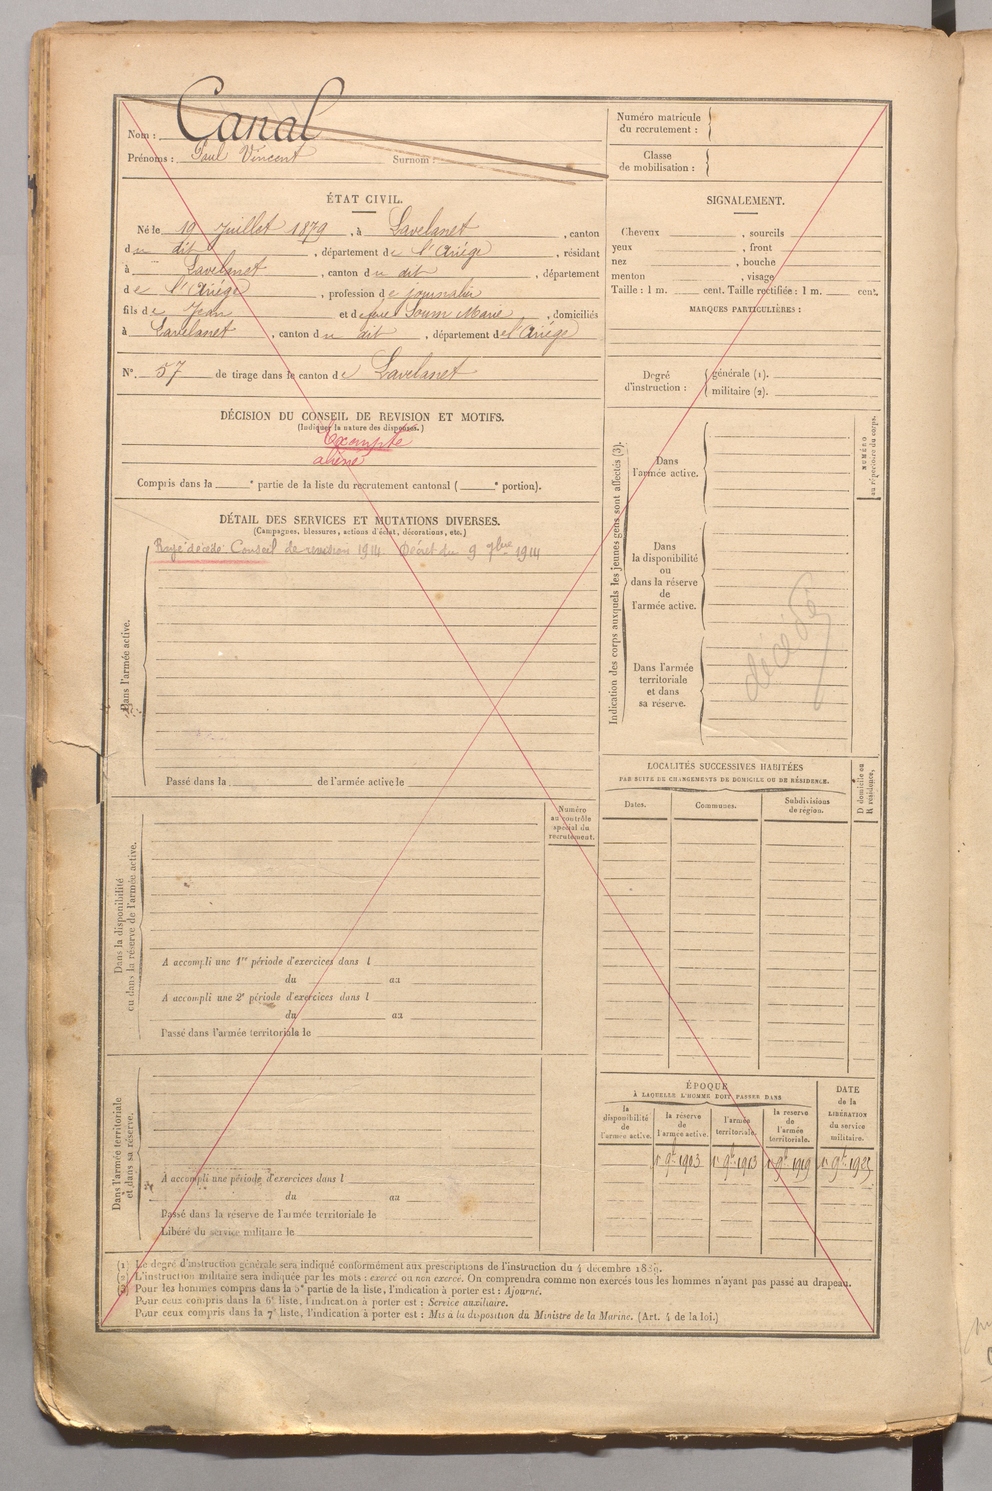 Nom : Canal
Prénoms : Paul Vincent Surnom :
Numéro matricule
du recrutement :
Classe
de mobilisation :
ÉTAT CIVIL.
Né le 19 Juillet 1879, à Lavelanet, canton
du dit, département de l'Ariége, résidant
à Lavelanet, canton du dit, département
de l'Ariége, profession de journalier
fils de Jean et de feue Soum Marie, domiciliés
à Lavelanet, canton du dit, département de l'Ariége
N°. 57 de tirage dans le canton de Lavelanet
SIGNALEMENT.
Cheveux , sourcils
yeux , front
nez , bouche
menton , visage
Taille : 1 m. cent. Taille rectifiée : 1 m. cent.
MARQUES PARTICULIÈRES :
Degré
d'instruction :
générale (1).
militaire (2).
DÉCISION DU CONSEIL DE REVISION ET MOTIFS.
(Indiquer la nature des dispenses.)
Exempté
aliéné
Compris dans la e partie de la liste du recrutement cantonal ( e portion).
DÉTAIL DES SERVICES ET MUTATIONS DIVERSES.
(Campagnes, blessures, actions d'éclat, décorations, etc.)
Rayé décédé. Conseil de revision 1914. Décret du 9 7bre 1914
Dans l'armée active.
Passé dans la de l'armée active le
Indication des corps auxquels les jeunes gens sont affectés (3).
Dans
l'armée active.
Dans
la disponibilité
ou
dans la réserve
de
l'armée active.
Dans l'armée
territoriale
et dans
sa réserve.
NUMÉRO
au répertoire du corps.
décédé
LOCALITÉS SUCCESSIVES HABITÉES
PAR SUITE DE CHANGEMENTS DE DOMICILE OU DE RÉSIDENCE.
Dates.
Communes.
Subdivisions
de région.
D domicile ou
R résidence.
Numéro
au contrôle
spécial du
recrutement.
Dans la disponibilité
ou dans la réserve de l'armée active.
A accompli une 1re période d'exercices dans l
du au
A accompli une 2e période d'exercices dans l
du au
Passé dans l'armée territoriale le
ÉPOQUE
À LAQUELLE L'HOMME DOIT PASSER DANS
la
disponibilité
de
l'armée active.
la réserve
de
l'armée active.
l'armée
territoriale.
la reserve
de
l'armée
territoriale.
DATE
de la
LIBÉRATION
du service
militaire.
1r 9bre 1903 1r 9bre 1913 1r 9bre 1919 1r 9bre 1925
Dans l'armée territoriale
et dans sa réserve.
A accompli une période d'exercices dans l
du au
Passé dans la réserve de l'armée territoriale le
Libéré du service militaire le
(1) Le degré d'instruction générale sera indiqué conformément aux prescriptions de l'instruction du 4 décembre 1889.
(2) L'instruction militaire sera indiquée par les mots : exercé ou non exercé. On comprendra comme non exercés tous les hommes n'ayant pas passé au drapeau.
(3) Pour les hommes compris dans la 5e partie de la liste, l'indication à porter est : Ajourné.
Pour ceux compris dans la 6e liste, l'indication à porter est : Service auxiliaire.
Pour ceux compris dans la 7e liste, l'indication à porter est : Mis à la disposition du Ministre de la Marine. (Art. 4 de la loi.)